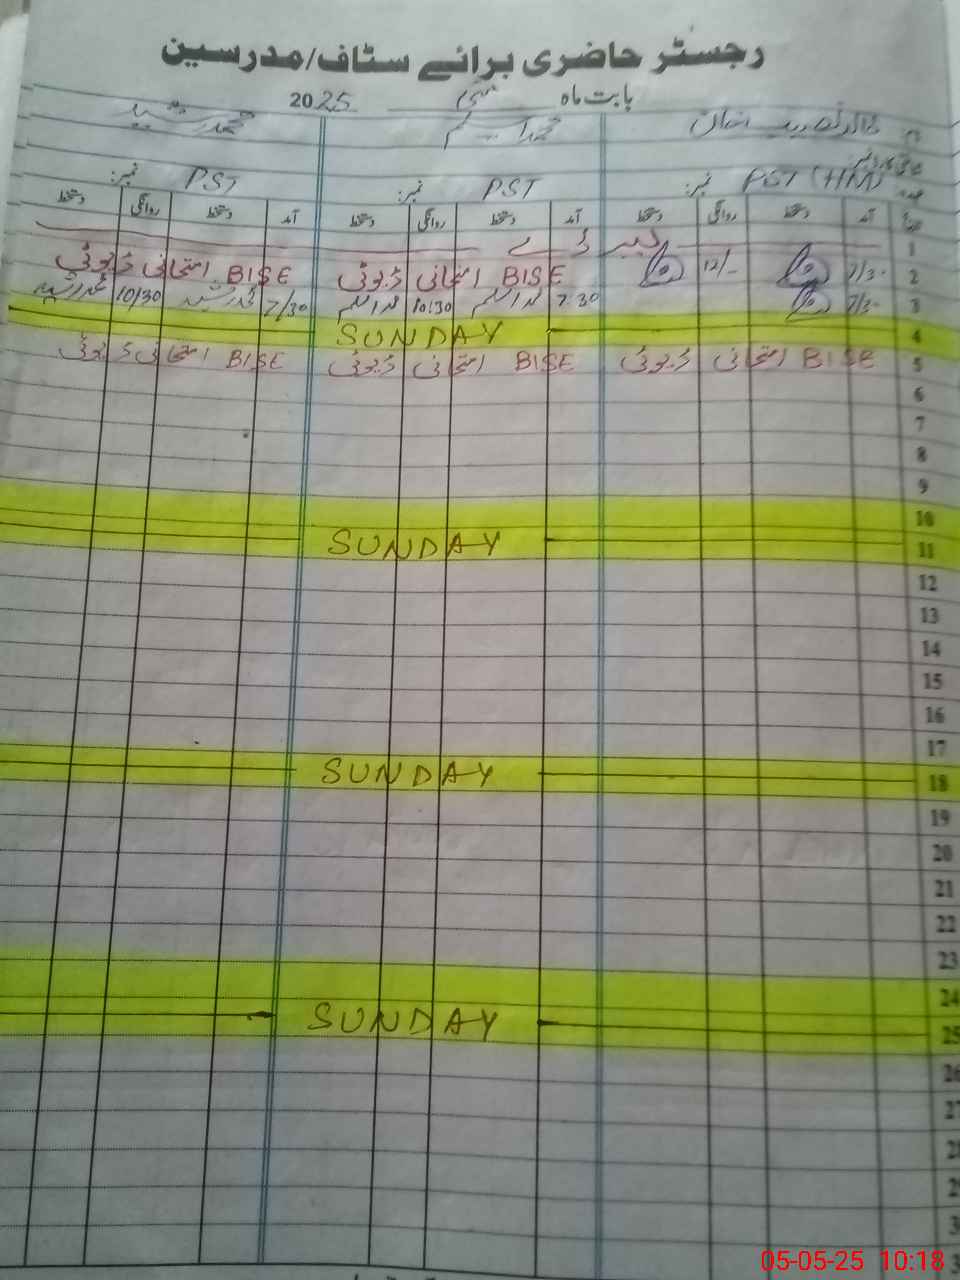 رجسٹر حاضری برائے سٹاف/مدرسین
بابت ماہ مئی 2025
محمد اسلم محمد رشید
عہدہ PST (HM) نمبر: PST نمبر: PST نمبر:
آمد دستخط روانگی دستخط آمد دستخط روانگی دستخط آمد دستخط روانگی دستخط
1 لیبر ڈے
2 7/30 12/- BISE امتحانی ڈیوٹی BISE امتحانی ڈیوٹی
3 7/30 7.30 محمد اسلم 10:30 محمد اسلم 7/30 محمد رشید 10/30 محمد رشید
4 SUNDAY
5 BISE امتحانی ڈیوٹی BISE امتحانی ڈیوٹی BISE امتحانی ڈیوٹی
6
7
8
9
10
11 SUNDAY
12
13
14
15
16
17
18 SUNDAY
19
20
21
22
23
24
25 SUNDAY
26
27
05-05-25 10:18